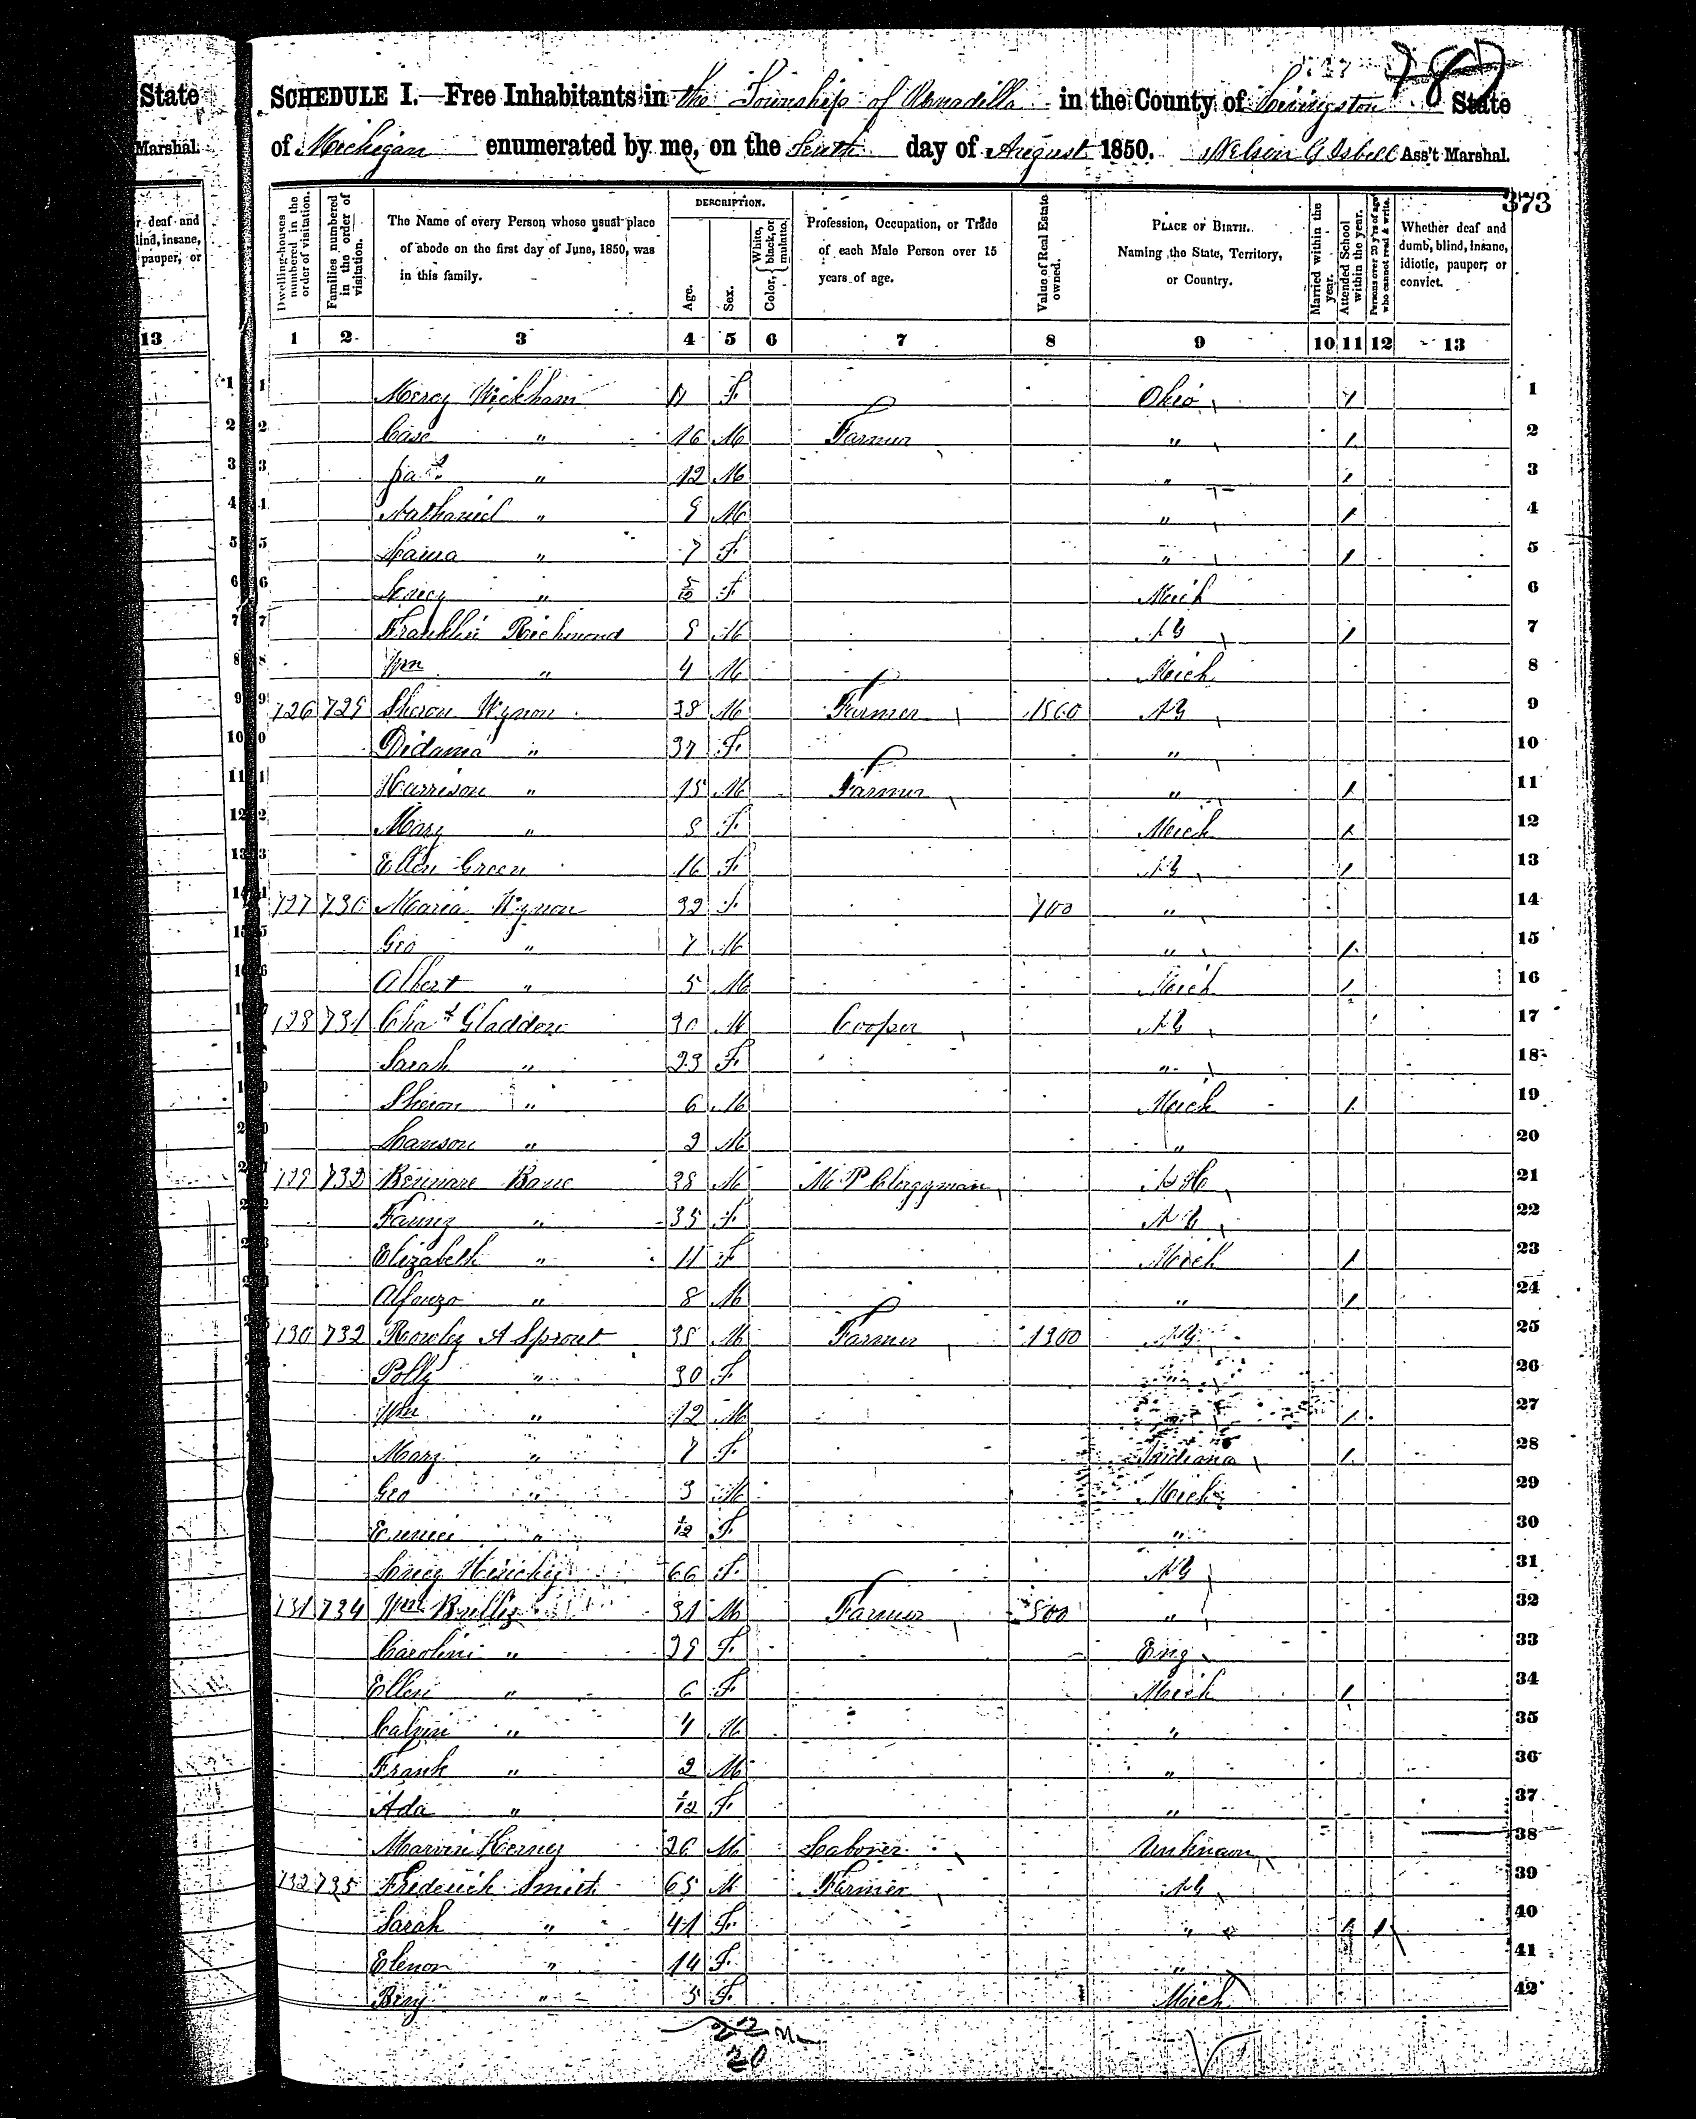 State
Marshal.
r deaf and
lind, insane,
pauper, or
13
787
SCHEDULE I.—Free Inhabitants in the Township of Unadilla in the County of Livingston State
of Michigan enumerated by me, on the Tenth day of August 1850. Nelson G Isbell Ass't Marshal.
373
Dwelling-houses numbered in the order of visitation.
Families numbered in the order of visitation.
The Name of every Person whose usual place of abode on the first day of June, 1850, was in this family.
DESCRIPTION.
Age.
Sex.
Color, { White, black, or mulatto.
Profession, Occupation, or Trade of each Male Person over 15 years of age.
Value of Real Estate owned.
PLACE OF BIRTH. Naming the State, Territory, or Country.
Married within the year.
Attended School within the year.
Persons over 20 y'rs of age who cannot read & write.
Whether deaf and dumb, blind, insane, idiotic, pauper, or convict.
1 2 3 4 5 6 7 8 9 10 11 12 13
1 Mercy Wickham F Ohio 1 1
2 Case " 16 M Farmer " 1 2
3 " 12 M " 1 3
4 Nathaniel " 9 M " 1 4
5 " 7 F " 1 5
6 " 5/12 F Mich 6
7 Franklin Richmond 9 M NY 1 7
8 Wm " 4 M Mich 8
9 726 729 Sheron Wynon 38 M Farmer 1500 NY 9
10 Didama " 37 F " 10
11 Harrison " 15 M Farmer " 1 11
12 Mary " F Mich 1 12
13 Ellen Green 16 F NY 1 13
14 727 730 Maria Wynon 32 F 700 " 14
15 Geo " 7 M " 1 15
16 Albert " 5 M Mich 1 16
17 728 731 Chas Gladden 30 M Cooper NY 17
18 Sarah " 23 F " 18
19 Sheron " 6 M Mich 1 19
20 Lanson " 2 M " 20
21 729 732 Bane 38 M M P Clergyman NH 21
22 Fanny " 35 F NY 22
23 Elizabeth " 11 F Mich 1 23
24 Alfonzo " 8 M " 1 24
25 730 732 Rowley A Sprout 38 M Farmer 1300 NY 25
26 Polly " 30 F " 26
27 Wm " 12 M " 1 27
28 Mary " 7 F Indiana 1 28
29 Geo " 3 M Mich 29
30 Eunice " 1/12 F " 30
31 Lucy 66 F NY 31
32 731 734 Wm 31 M Farmer 500 " 32
33 Caroline " 29 F Eng 33
34 Ellen " 6 F Mich 1 34
35 Calvin " 4 M " 35
36 Frank " 2 M " 36
37 Ada " 1/12 F " 37
38 Marvin 26 M Laborer Unknown 38
39 732 735 Frederick Smith 65 M Farmer NY 39
40 Sarah " 41 F " 1 1 40
41 Elenor " 14 F " 41
42 " 5 F Mich 42
22 m
20